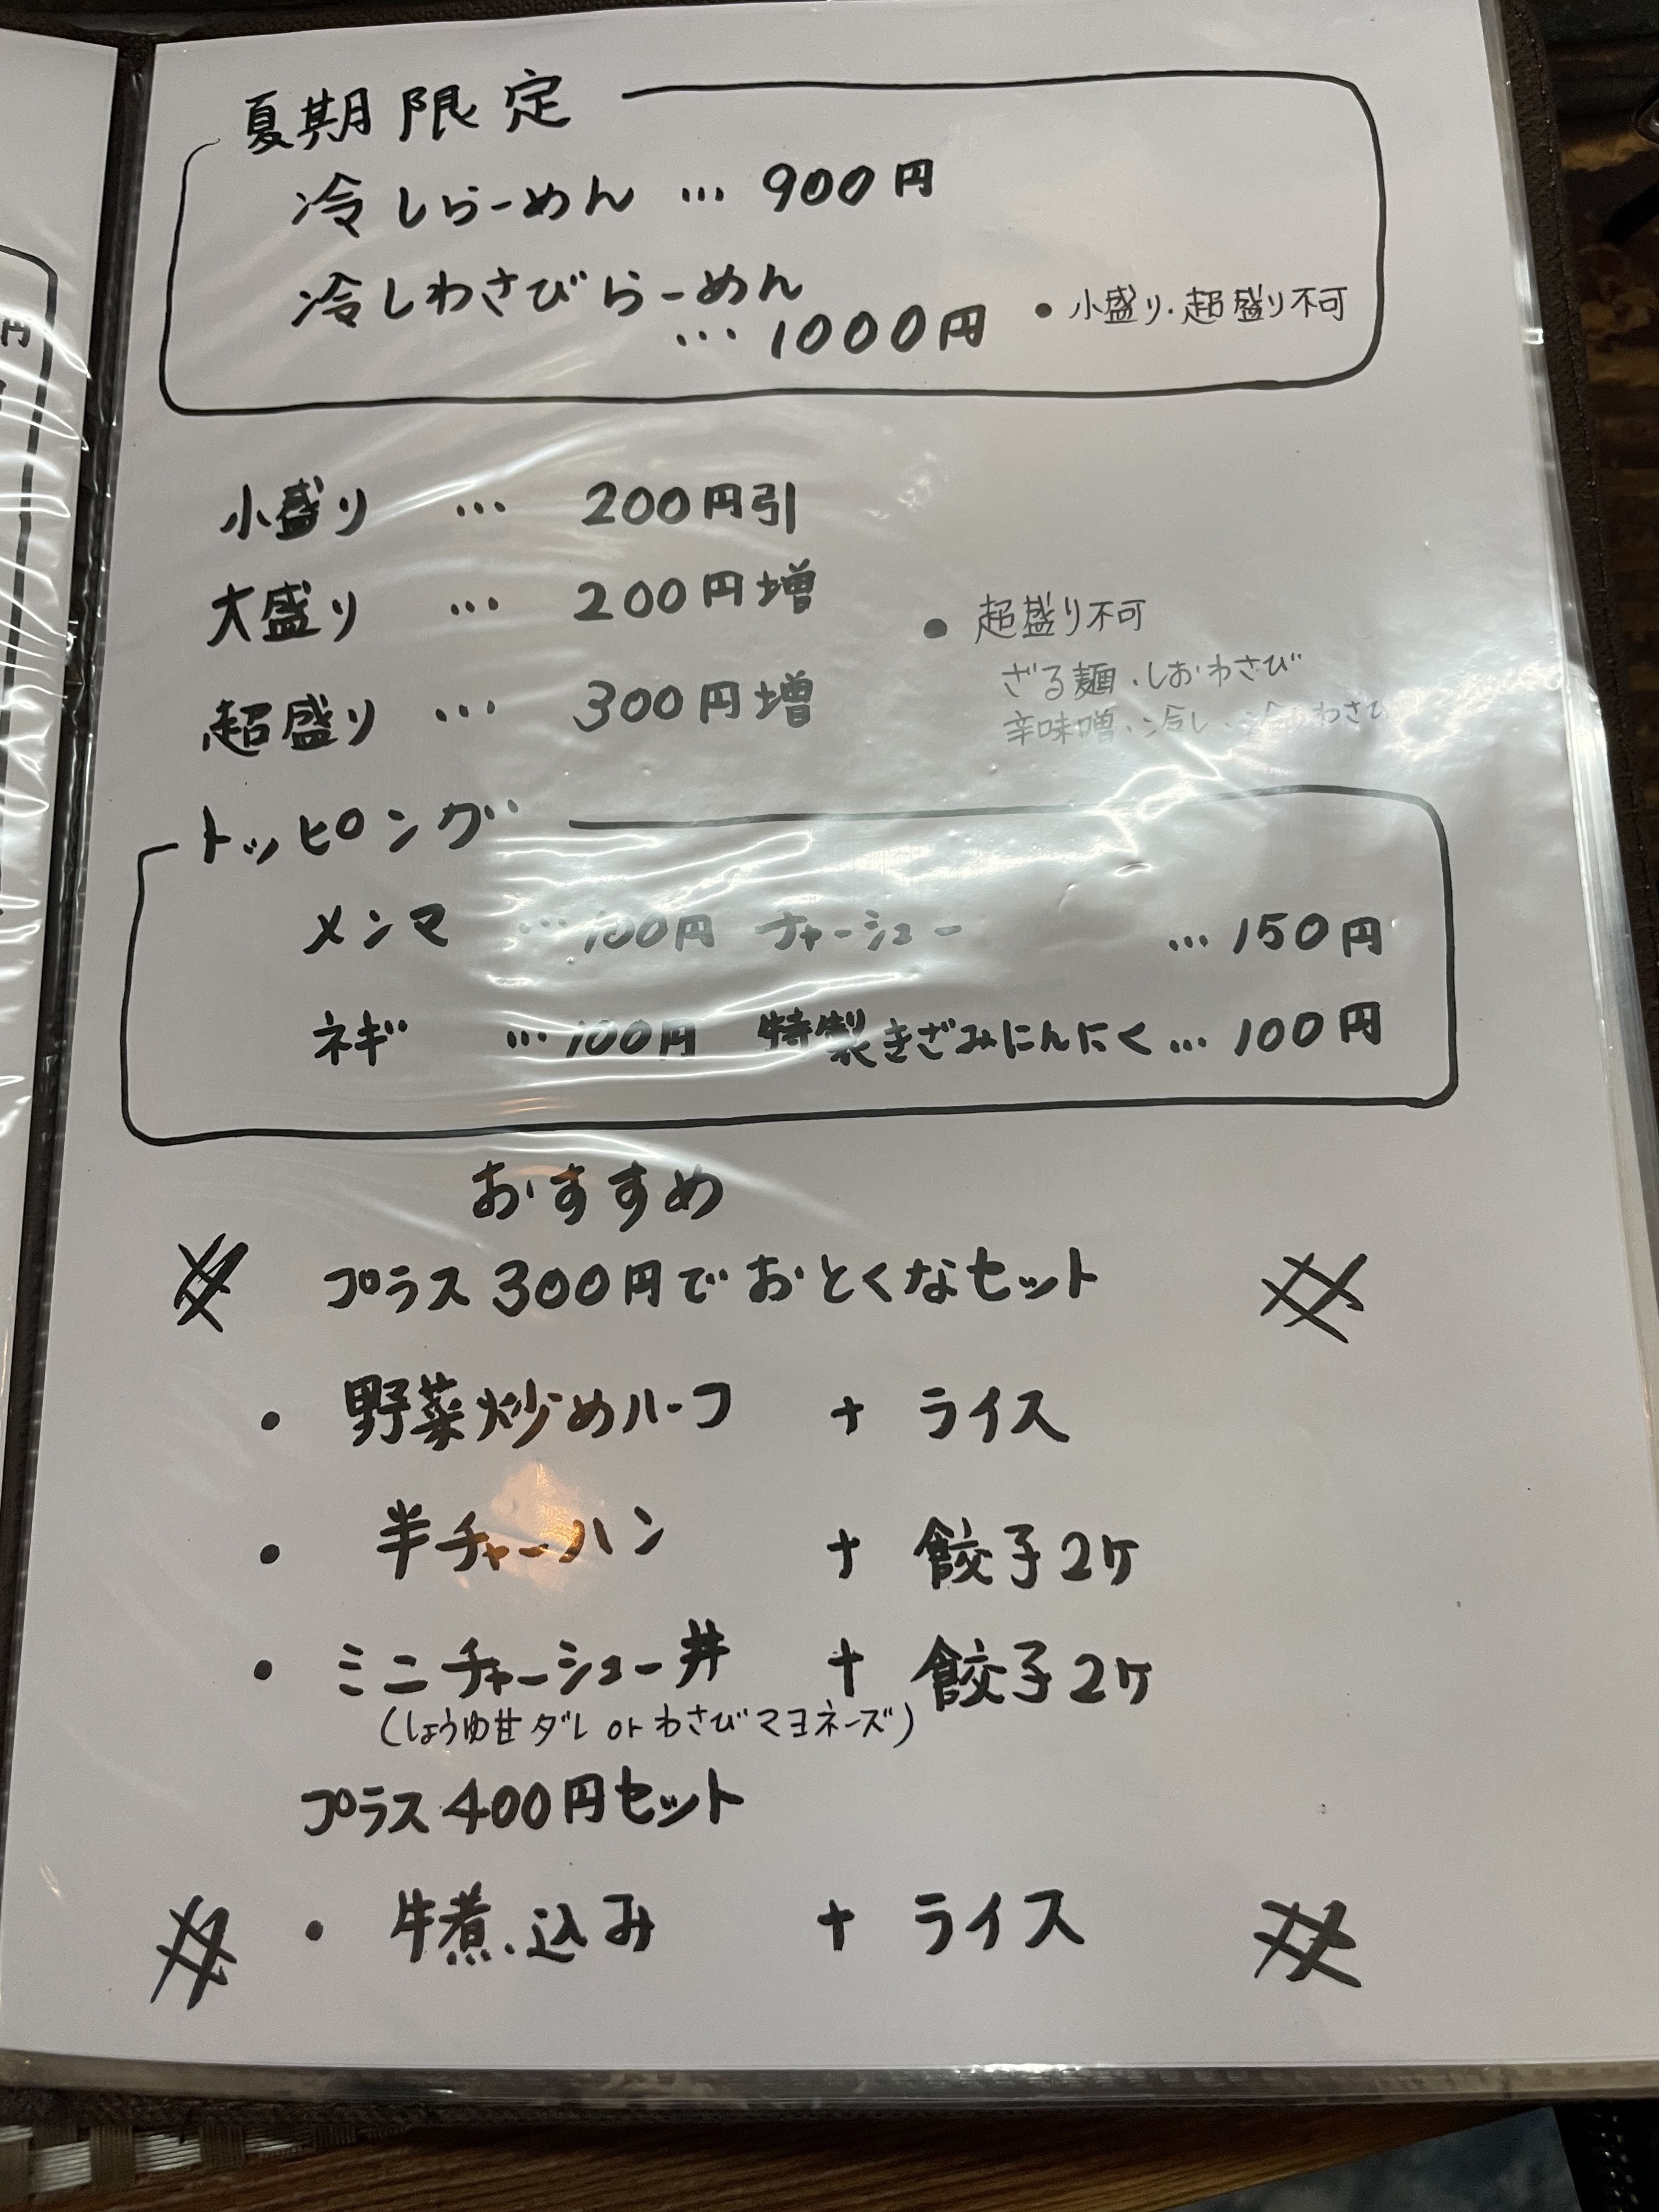 円
夏期限定
冷しらーめん … 900円
冷しわさびらーめん
… 1000円 ・小盛り・超盛り不可
小盛り … 200円引
大盛り … 200円増
超盛り … 300円増
・超盛り不可
ざる麺・しおわさび
辛味噌・冷し・冷しわさび
トッピング
メンマ … 100円 チャーシュー … 150円
ネギ … 100円 特製きざみにんにく … 100円
おすすめ
プラス300円でおとくなセット
・野菜炒めハーフ + ライス
・半チャーハン + 餃子2ケ
・ミニチャーシュー丼 + 餃子2ケ
(しょうゆ甘ダレ or わさびマヨネーズ)
プラス400円セット
・牛煮込み + ライス